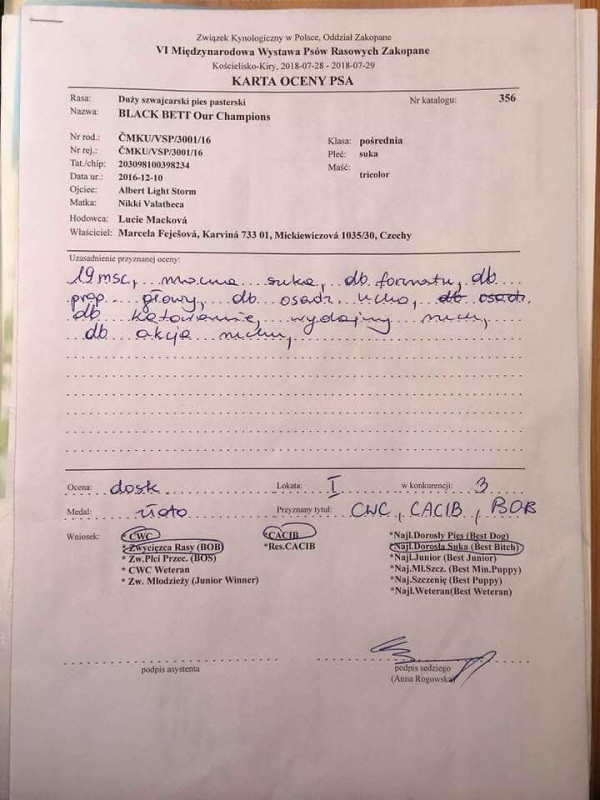 Związek Kynologiczny w Polsce, Oddział Zakopane
VI Międzynarodowa Wystawa Psów Rasowych Zakopane
Kościelisko-Kiry, 2018-07-28 - 2018-07-29
KARTA OCENY PSA
Rasa: Duży szwajcarski pies pasterski Nr katalogu: 356
Nazwa: BLACK BETT Our Champions
Nr rod.: ČMKU/VSP/3001/16 Klasa: pośrednia
Nr rej.: ČMKU/VSP/3001/16 Płeć: suka
Tat./chip: 203098100398234 Maść: tricolor
Data ur.: 2016-12-10
Ojciec: Albert Light Storm
Matka: Nikki Valatheca
Hodowca: Lucie Macková
Właściciel: Marcela Feješová, Karviná 733 01, Mickiewiczová 1035/30, Czechy
Uzasadnienie przyznanej oceny:
19 msc, mocna suka, db. formatu, db
prop. głowy, db osadz. ucho, db osadz.
db kątowanie, wydajny ruch,
db akcja ruchu,
Ocena: dosk Lokata: I w konkurencji: 3
Medal: złoto Przyznany tytuł: CWC, CACIB, BOB
Wniosek: * CWC *CACIB *Najl.Dorosły Pies (Best Dog)
* Zwycięzca Rasy (BOB) *Res.CACIB *Najl.Dorosła Suka (Best Bitch)
* Zw.Płci Przec. (BOS) *Najl.Junior (Best Junior)
* CWC Weteran *Naj.Mł.Szcz. (Best Min.Puppy)
* Zw. Młodzieży (Junior Winner) *Naj.Szczenię (Best Puppy)
*Najl.Weteran(Best Weteran)
podpis asystenta podpis sędziego
(Anna Rogowska)